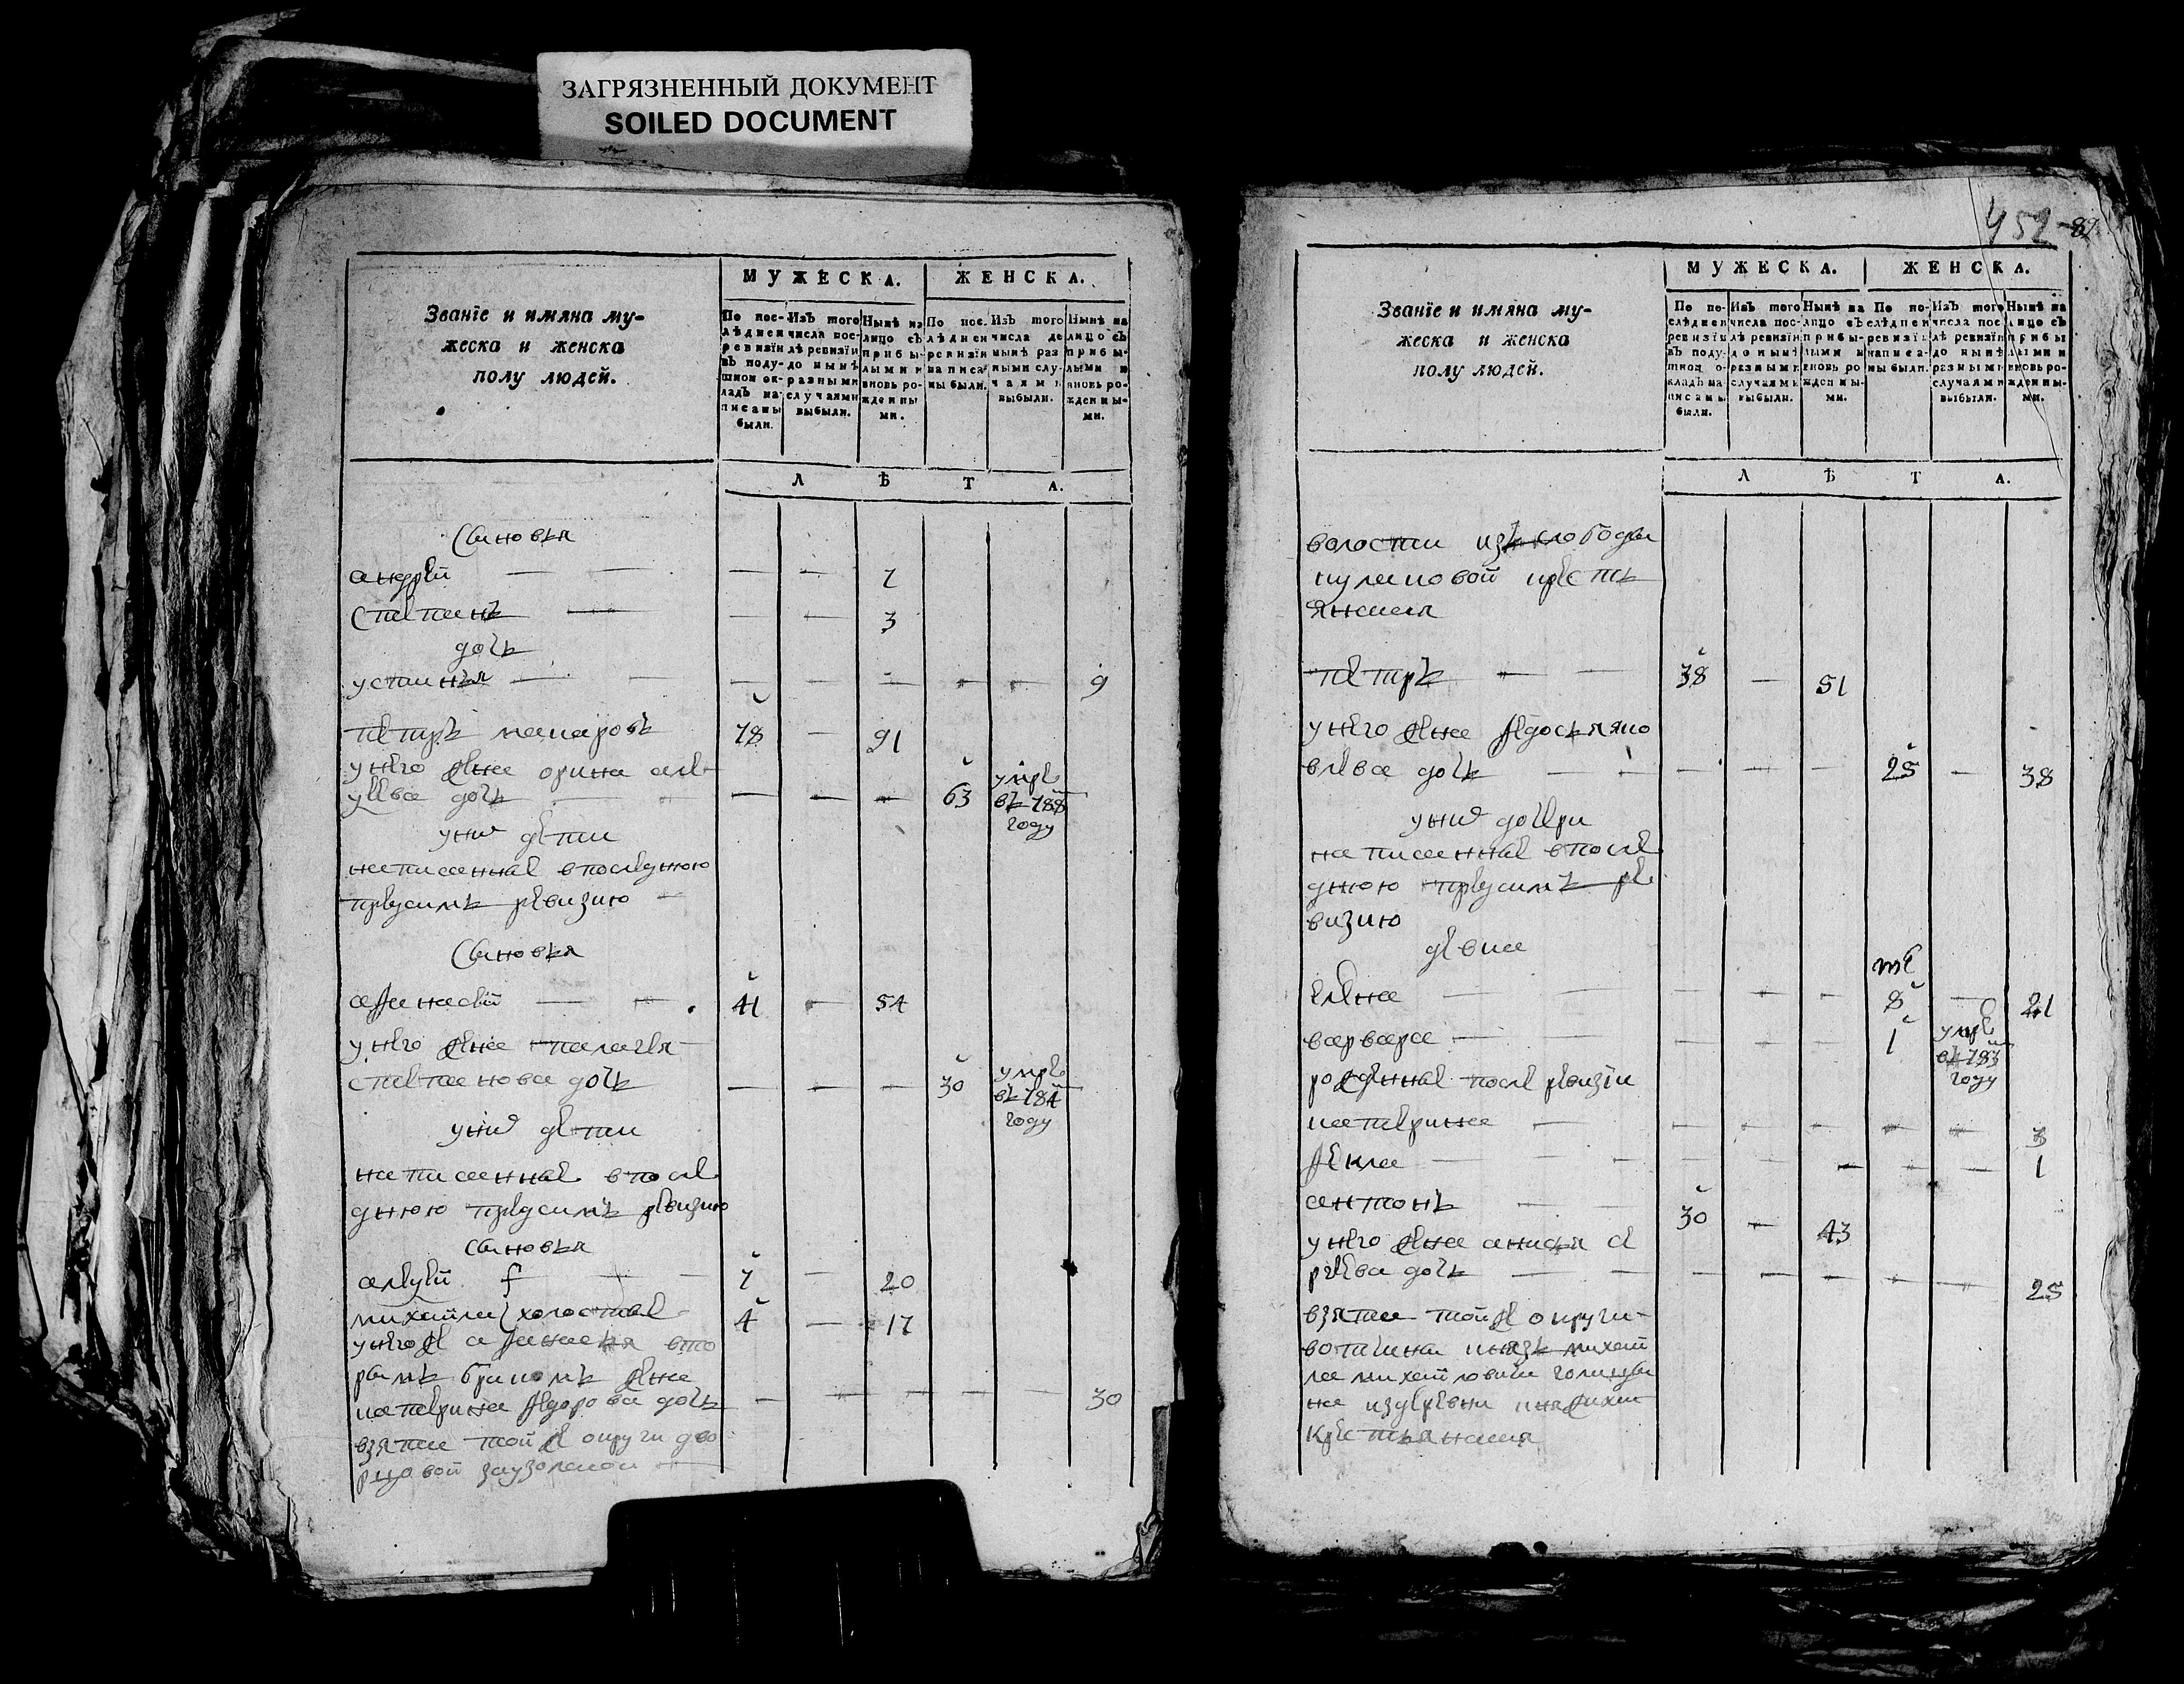 ЗАГРЯЗНЕННЫЙ ДОКУМЕНТ
SOILED DOCUMENT
Званїе и имяна му-
жеска и женска
полу людей.
МУЖЕСКА.
ЖЕНСКА.
По пос-
лѣдней
ревизїи
въ поду-
шной ок-
ладъ на-
писаны
были.
Изъ того
числа пос-
лѣ ревизїи
до нынѣ
разными
случаями
выбыли.
Нынѣ на
лицо съ
прибы-
лыми и
вновь ро-
жденны-
ми.
По пос.
лѣдней
ревизїи
написа
ны были.
Изъ того
числа до
нынѣ раз
ными слу-
чаями
выбыли.
Нынѣ на
лицо съ
прибы-
лыми и
вновь ро-
жденны-
ми.
ЛѢТА.
сыновья
андрей 7
степанъ 3
дочь
устинья 9
петръ макаровъ 78 91
у него жена орина але
уева дочь 63 умре въ 788 году
у них дети
написанныe впоследнюю
предсимъ ревизию
сыновья
афанасей 41 54
у него жена палагея
степанова дочь 30 умре въ 784 году
у них дети
написанные впосле
днюю предсимъ ревизию
сыновья
алекъсей 7 20
михайла холостые 4 17
у негож афанасья вто
рымъ бракомъ жена
катерина федорова дочь 30
взята той ж округи дво
рцовой заузолской
452
82
Званїе и имяна му-
жеска и женска
полу людей.
МУЖЕСКА.
ЖЕНСКА.
По по-
слѣдней
ревизїи
въ поду-
шной о-
кладъ на-
писаны
были.
Изъ того
числа пос-
лѣ ревизїи
до нынѣ
разными
случаями
выбыли.
Нынѣ на
лицо съ
прибы-
лыми и
вновь ро
жденны-
ми.
По по-
слѣдней
ревизїи
написа-
ны были.
Изъ того
числа пос
лѣ ревизїи
до нынѣ
разными
случаями
выбыли.
Нынѣ на
лицо съ
прибы
лыми и
вновь ро-
жденны-
ми.
ЛѢТА.
волости изъ слободы
куликовой кресть
янская
петръ 38 51
у него жена федосья яко
влева дочь 25 38
у них дочери
написанные впосле
днюю предсимъ ре
визию
девки
елена 8 21
варвара 1 умре въ 783 году
рожденные после ревизїи
катерина 3
фекла 1
антонъ 30 43
у него жена анисья се
ргеева дочь 25
взята той ж округи
вотчины князь михай
ла михайловича голицы
на
крестьянская